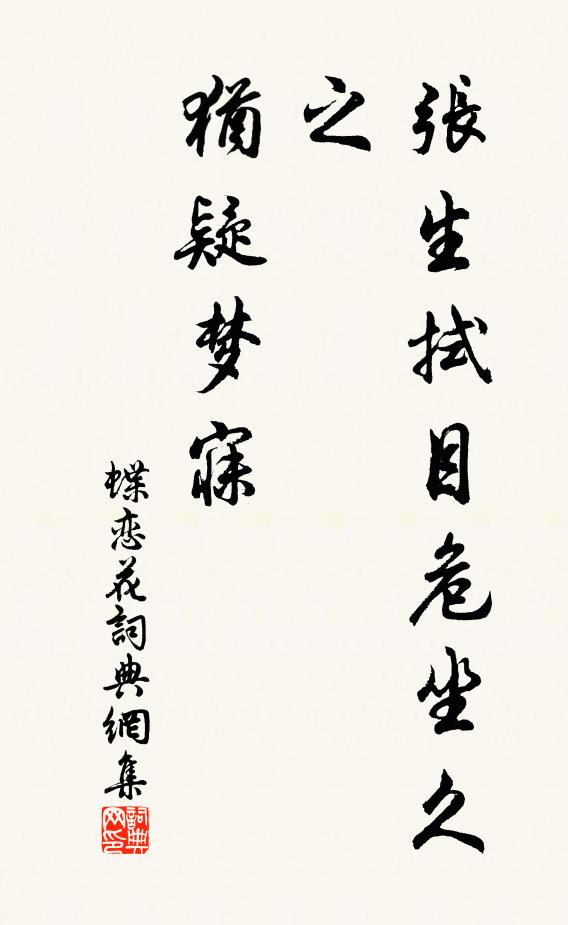 張生拭目危坐久
之
猶疑梦寐
蝶恋花詞典網集
詞典
网印